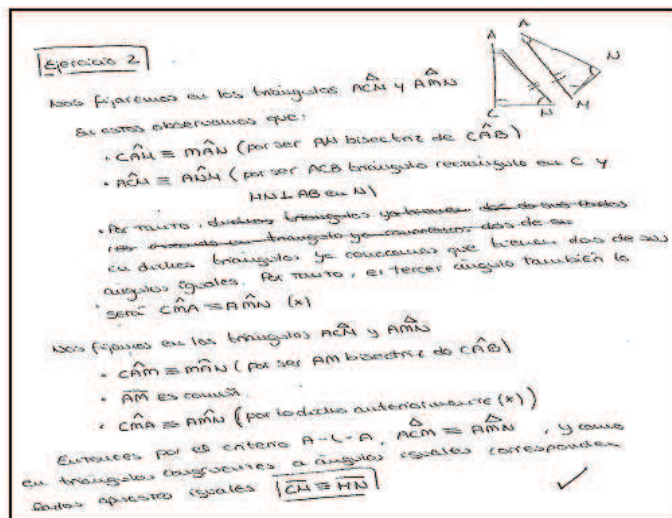 Ejercicio 2
A A
N
M
C N
Nos fijaremos en los triángulos ACM y AMN
En estos observamos que:
• CÂM ≡ MÂN (por ser AM bisectriz de CÂB)
• AĈM ≡ AN̂M (por ser ACB triángulo rectángulo en C y
MN⊥AB en N)
• Por tanto, dichos triángulos ya tienen dos de sus lados
un triángulo ya conocemos dos de su
en dichos triángulos, ya conocemos que tienen dos de sus
ángulos iguales. Por tanto, el tercer ángulo también lo
será CM̂A ≡ AM̂N (*)
Nos fijamos en los triángulos ACM y AMN
• CÂM ≡ MÂN (por ser AM bisectriz de CÂB)
• AM es común.
• CM̂A ≡ AM̂N (por lo dicho anteriormente (*))
Entonces por el criterio A-L-A, ACM ≡ AMN, y como
en triángulos congruentes a ángulos iguales corresponden
lados opuestos iguales CM ≡ MN